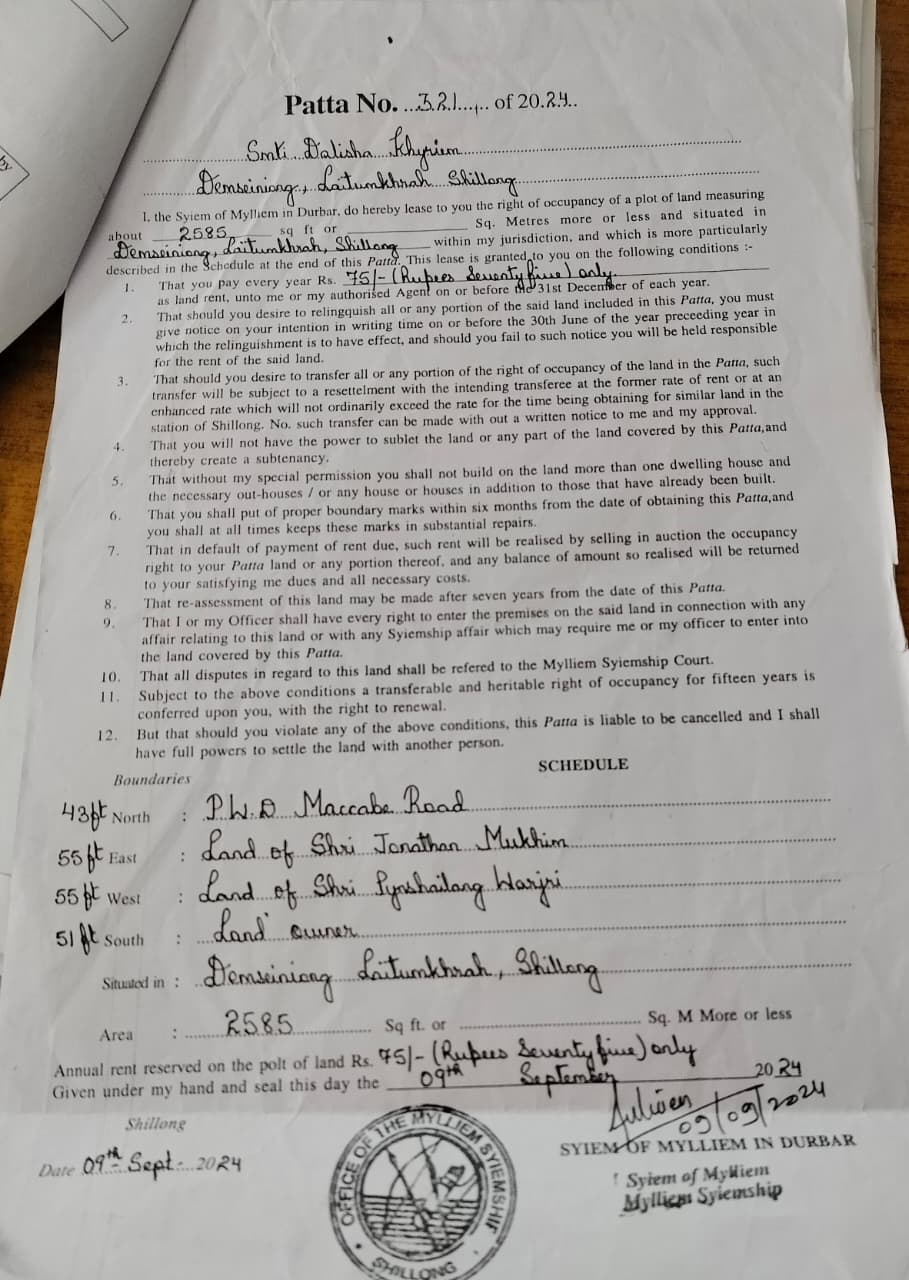 Patta No. ...321....,.. of 2024..
Smti. Dalisha Khyriem
Demseiniong, Laitumkhrah Shillong
I, the Syiem of Mylliem in Durbar, do hereby lease to you the right of occupancy of a plot of land measuring
about 2585 sq ft or ____________ Sq. Metres more or less and situated in
Demseiniong, Laitumkhrah, Shillong within my jurisdiction, and which is more particularly
described in the Schedule at the end of this Patta. This lease is granted to you on the following conditions :-
1. That you pay every year Rs. 75/- (Rupees Seventy five) only.
as land rent, unto me or my authorised Agent on or before the 31st December of each year.
2. That should you desire to relingquish all or any portion of the said land included in this Patta, you must
give notice on your intention in writing time on or before the 30th June of the year preceeding year in
which the relinguishment is to have effect, and should you fail to such notice you will be held responsible
for the rent of the said land.
3. That should you desire to transfer all or any portion of the right of occupancy of the land in the Patta, such
transfer will be subject to a resettelment with the intending transferee at the former rate of rent or at an
enhanced rate which will not ordinarily exceed the rate for the time being obtaining for similar land in the
station of Shillong. No. such transfer can be made with out a written notice to me and my approval.
4. That you will not have the power to sublet the land or any part of the land covered by this Patta,and
thereby create a subtenancy.
5. That without my special permission you shall not build on the land more than one dwelling house and
the necessary out-houses / or any house or houses in addition to those that have already been built.
6. That you shall put of proper boundary marks within six months from the date of obtaining this Patta,and
you shall at all times keeps these marks in substantial repairs.
7. That in default of payment of rent due, such rent will be realised by selling in auction the occupancy
right to your Patta land or any portion thereof, and any balance of amount so realised will be returned
to your satisfying me dues and all necessary costs.
8. That re-assessment of this land may be made after seven years from the date of this Patta.
9. That I or my Officer shall have every right to enter the premises on the said land in connection with any
affair relating to this land or with any Syiemship affair which may require me or my officer to enter into
the land covered by this Patta.
10. That all disputes in regard to this land shall be refered to the Mylliem Syiemship Court.
11. Subject to the above conditions a transferable and heritable right of occupancy for fifteen years is
conferred upon you, with the right to renewal.
12. But that should you violate any of the above conditions, this Patta is liable to be cancelled and I shall
have full powers to settle the land with another person.
SCHEDULE
Boundaries
43ft North : P.W.D Maccabe Road
55 ft East : Land of Shri Jonathan Mukhim
55 ft West : Land of Shri Pynshailang Warjri
51 ft South : Land owner
Situated in : Demseiniong Laitumkhrah, Shillong
Area : 2585 Sq ft. or ............ Sq. M More or less
Annual rent reserved on the polt of land Rs. 75/- (Rupees Seventy five) only
Given under my hand and seal this day the 09th September 2024
09/09/2024
Shillong
SYIEM OF MYLLIEM IN DURBAR
Date 09th Sept - 2024
Syiem of Mylliem
Mylliem Syiemship
OFFICE OF THE MYLLIEM SYIEMSHIP
SHILLONG